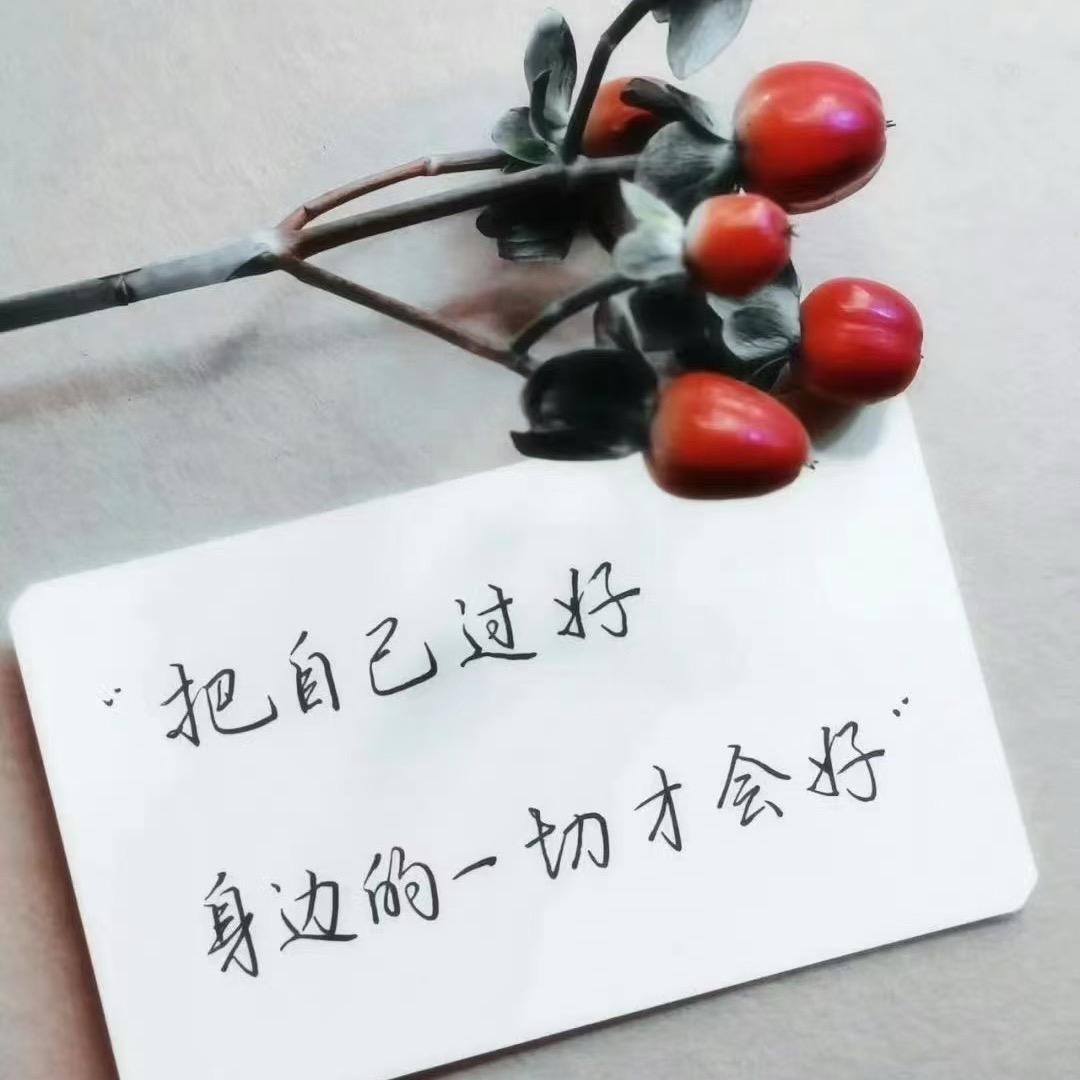 “把自己过好
身边的一切才会好”